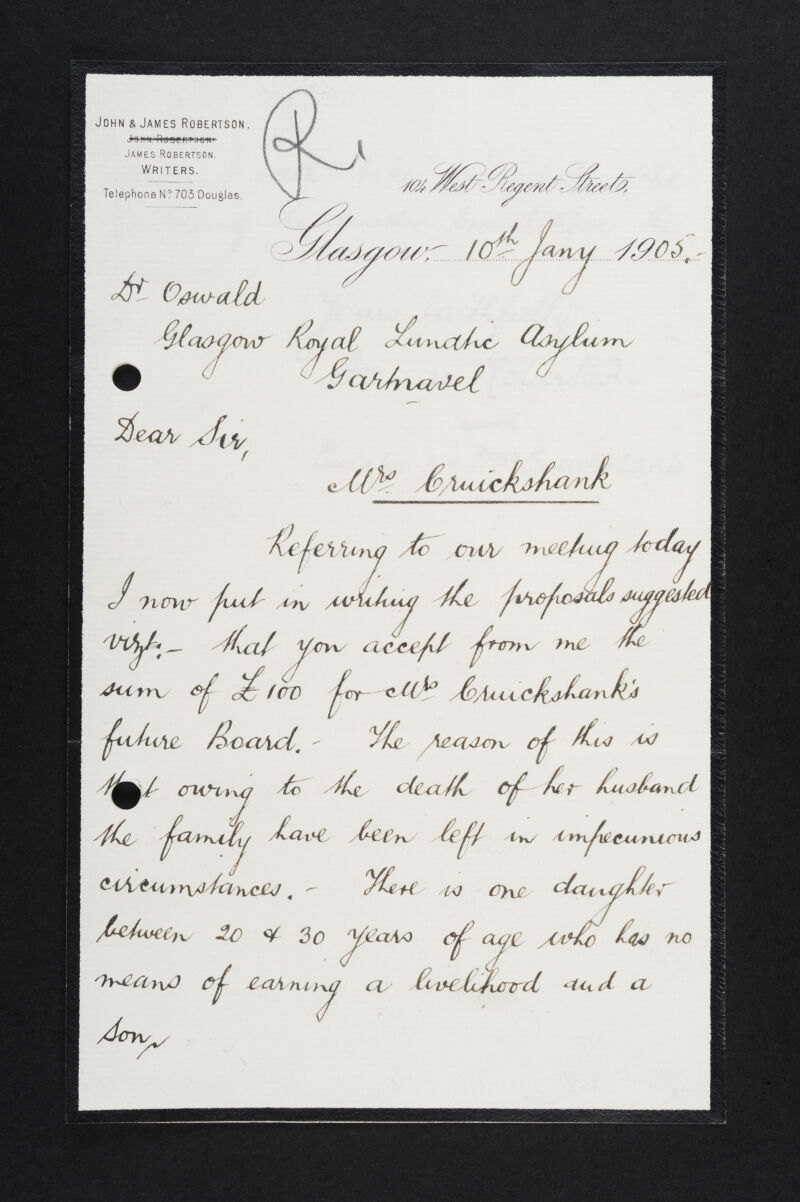 JOHN & JAMES ROBERTSON,
JOHN ROBERTSON.
JAMES ROBERTSON.
WRITERS.
Telephone Nº 703 Douglas.
R.
104 West Regent Street.
Glasgow, 10th Jany 1905.-
Dr Oswald
Glasgow Royal Lunatic Asylum
Gartnavel
Dear Sir,
Mrs Cruickshank
Referring to our meeting today
I now put in writing the proposals suggested
vizt:- that you accept from me the
sum of £100 for Mrs Cruickshank's
future Board. - The reason of this is
that owing to the death of her husband
the family have been left in impecunious
circumstances. - There is one daughter
between 20 & 30 years of age who has no
means of earning a livelihood and a
son,